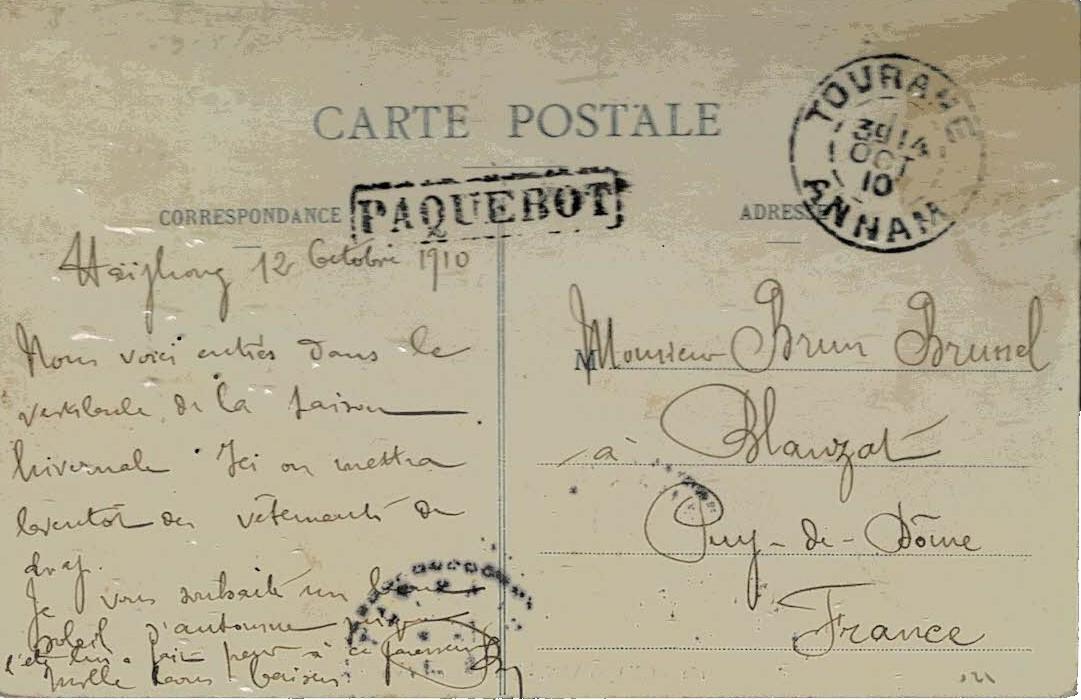 CARTE POSTALE
PAQUEBOT
CORRESPONDANCE
ADRESSE
TOURANE
3 9 14
OCT
10
ANNAM
Haïphong 12 Octobre 1910
Nous voici entrés dans le
vestibule de la saison
hivernale. Ici on mettra
bientôt des vêtements de
drap.
Je vous souhaite un beau
soleil d'automne
fait peur à ce
Mille bons baisers
M Monsieur Brun Brunel
à Blanzat
Puy-de-Dôme
France